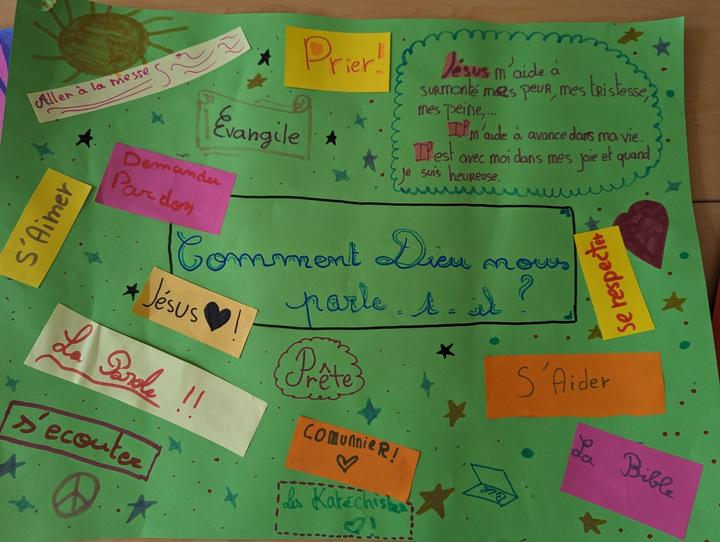 Aller à la messe
Prier!
Jésus m'aide à
surmonté mes peur, mes tristesse,
mes peine,...
Il m'aide à avance dans ma vie.
Il est avec moi dans mes joie et quand
je suis heureuse.
Évangile
Demander
Pardon
S'Aimer
Comment Dieu nous
parle-t-il?
se respecter
Jésus ♥!
La Parole !!
Prête
S'Aider
s'ecouter
comunnier!
♡
La Bible
Les Katéchistes
♡!